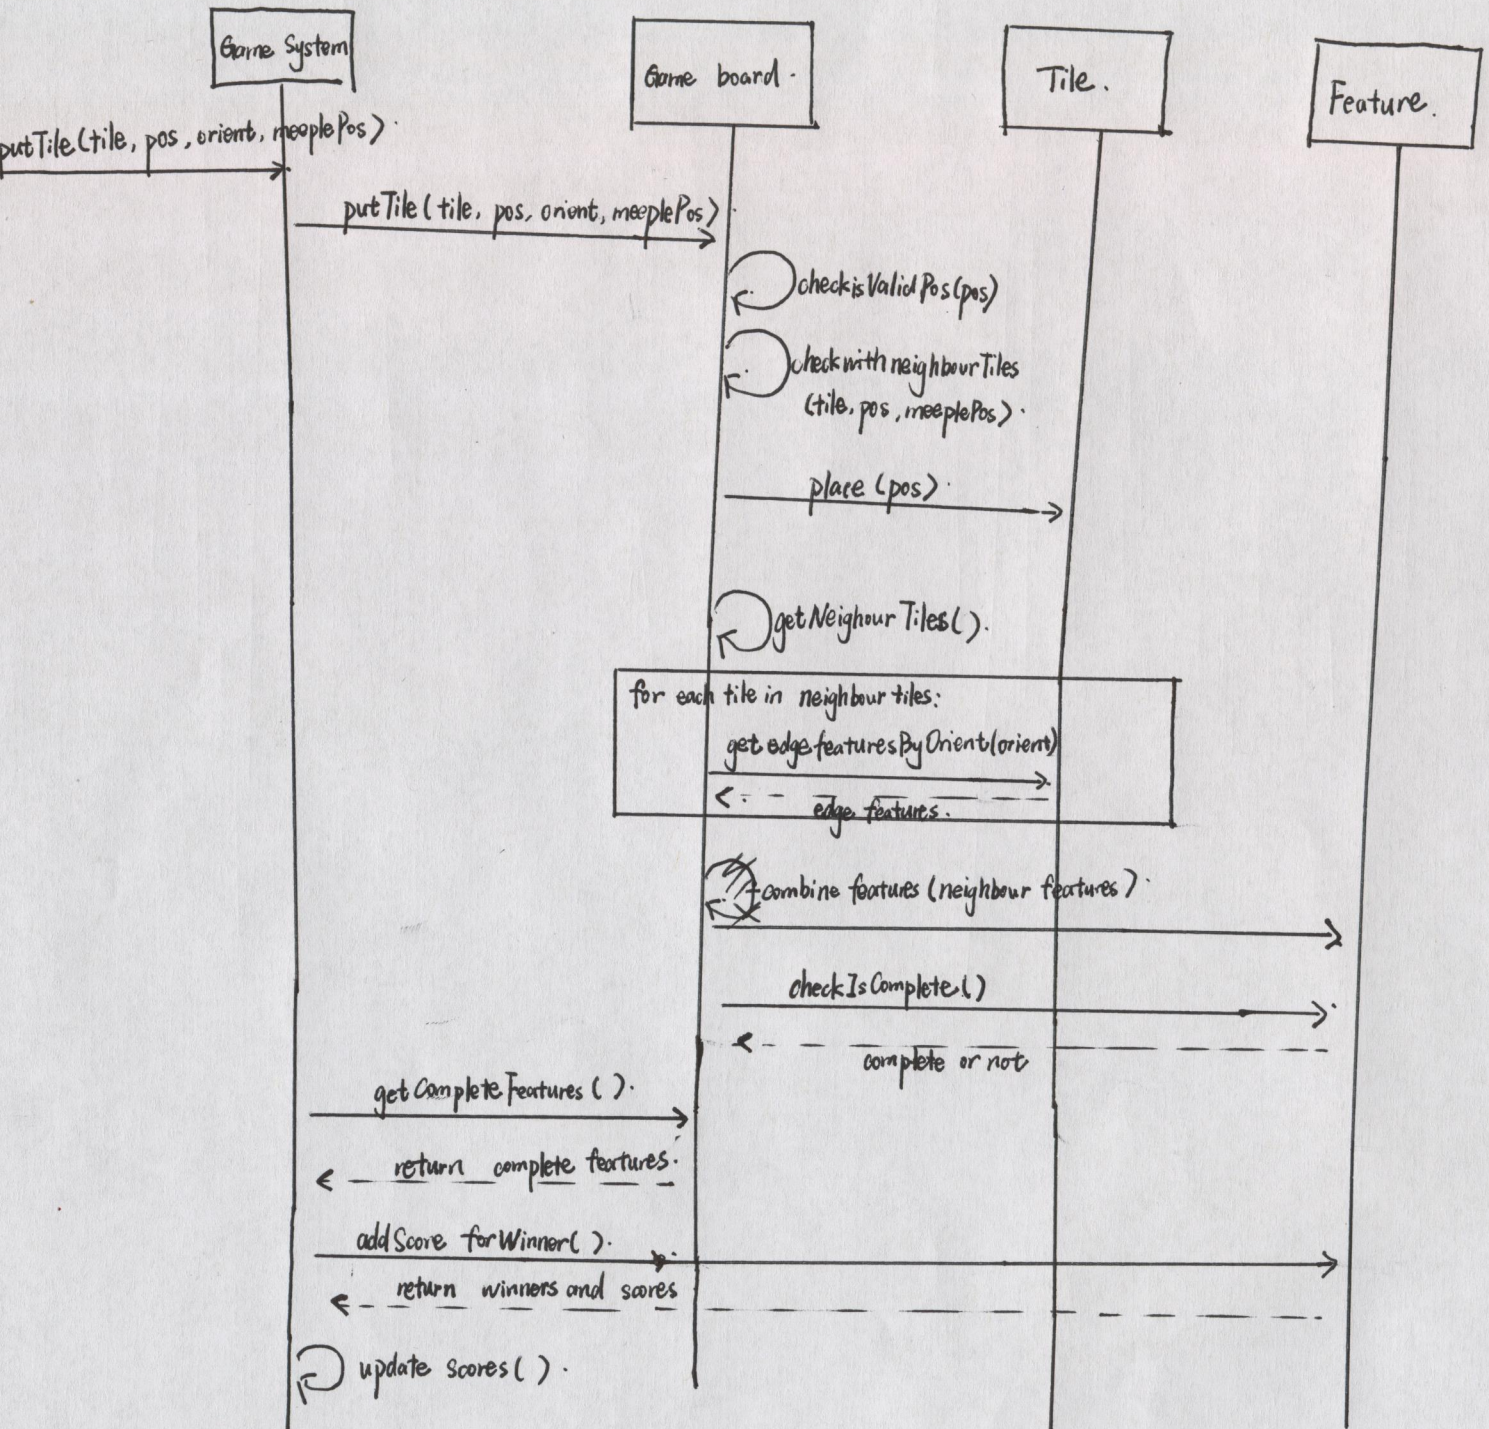 Game System
Game board.
Tile.
Feature.
putTile(tile, pos, orient, meeplePos).
putTile(tile, pos, orient, meeplePos)
checkisValidPos(pos)
checkwithneighbourTiles
(tile, pos, meeplePos).
place (pos).
getNeighourTiles().
for each tile in neighbour tiles:
getedgefeaturesByOrient(orient)
edge features.
combine features (neighbour features).
checkIsComplete()
complete or not
getCompleteFeatures().
return complete features.
addScore forWinner().
return winners and scores
update scores().